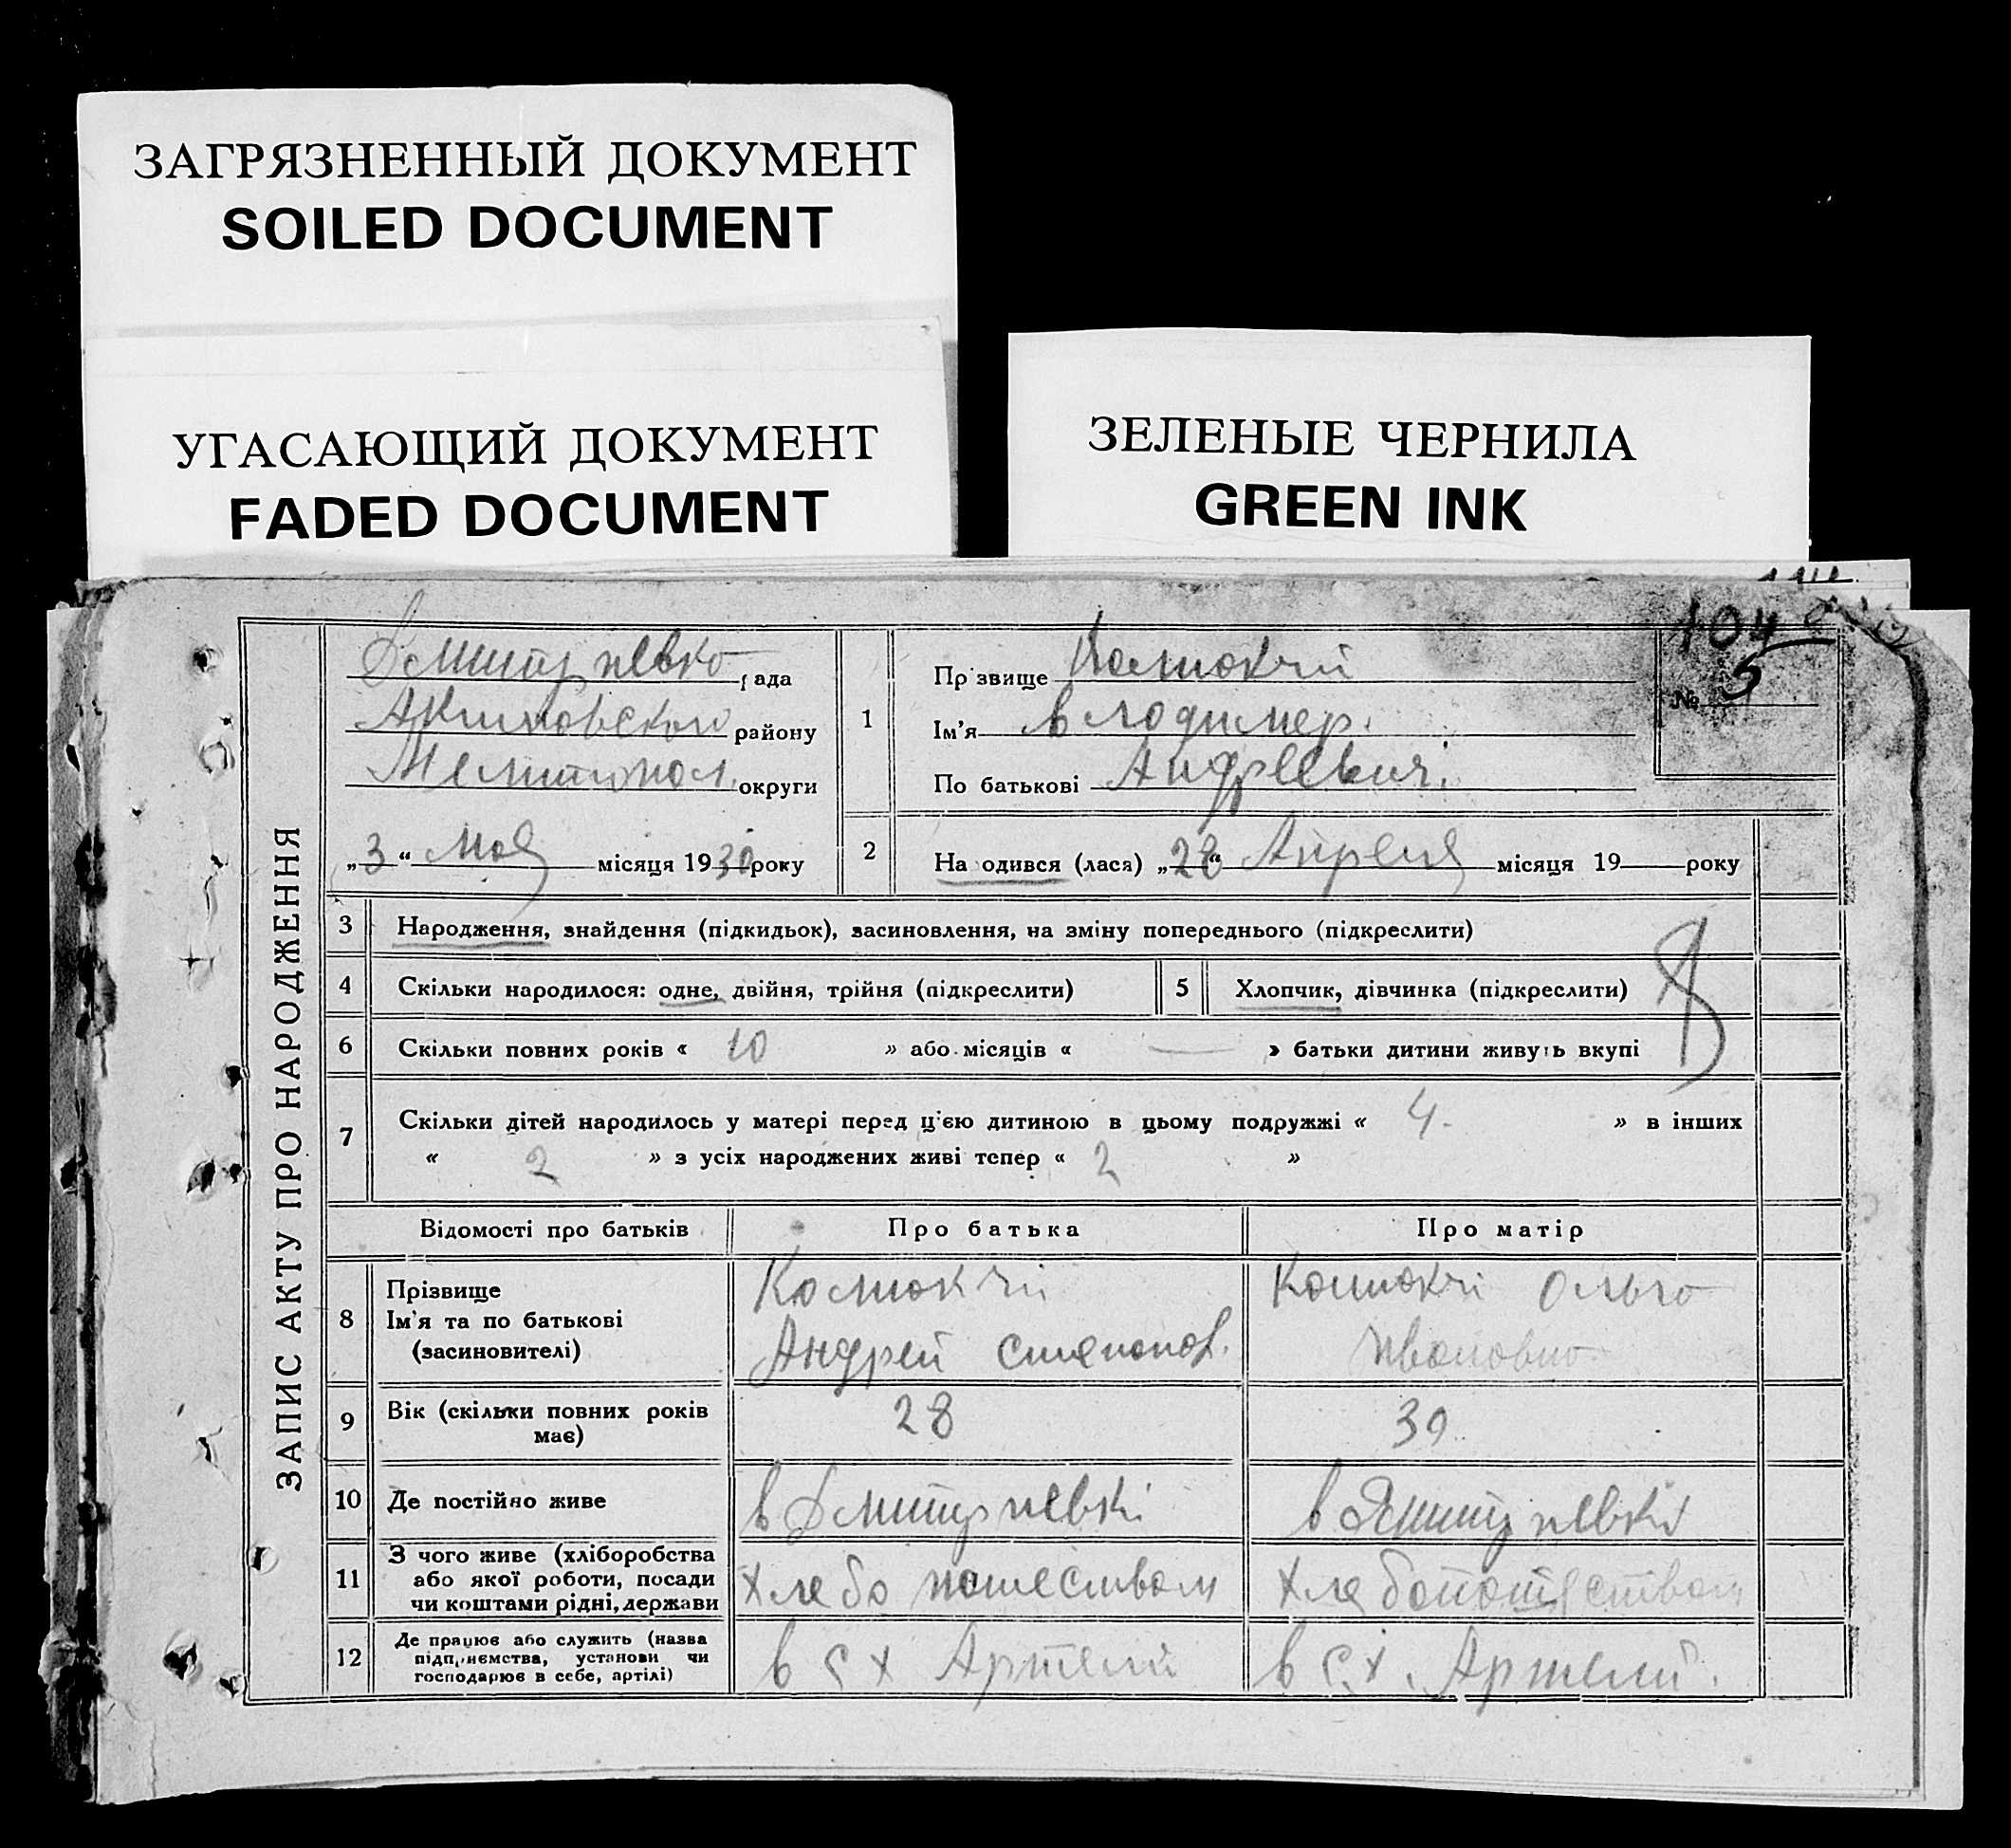 ЗАГРЯЗНЕННЫЙ ДОКУМЕНТ
SOILED DOCUMENT
УГАСАЮЩИЙ ДОКУМЕНТ
FADED DOCUMENT
ЗЕЛЕНЫЕ ЧЕРНИЛА
GREEN INK
104
ЗАПИС АКТУ ПРО НАРОДЖЕННЯ
рада
Акимовского району
Мелитопол. округи
„3“ Мая місяця 1930 року
1
Прізвище
Ім'я Владимер.
По батькові Андреевич.
№ 5
2
Народився (лася) „28“ Апреля місяця 19 року
3 Народження, знайдення (підкидьок), засиновлення, на зміну попереднього (підкреслити)
4 Скільки народилося: одне, двійня, трійня (підкреслити) 5 Хлопчик, дівчинка (підкреслити)
6 Скільки повних років « 10 » або місяців « — » батьки дитини живуть вкупі
7 Скільки дітей народилось у матері перед ц'єю дитиною в цьому подружжі « 4. » в інших
« 2 » з усіх народжених живі тепер « 2 »
Відомості про батьків Про батька Про матір
8 Прізвище
Ім'я та по батькові
(засиновителі)
Андрей Степанов.
Ольга
Ивановна
9 Вік (скільки повних років має) 28 30
10 Де постійно живе в в
11 З чого живе (хліборобства
або якої роботи, посади
чи коштами рідні, держави
Хлебопашеством Хлебопашеством
12 Де працює або служить (назва
підприємства, установи чи
господарює в себе, артілі)
в С Х Артели в С. Х. Артели.